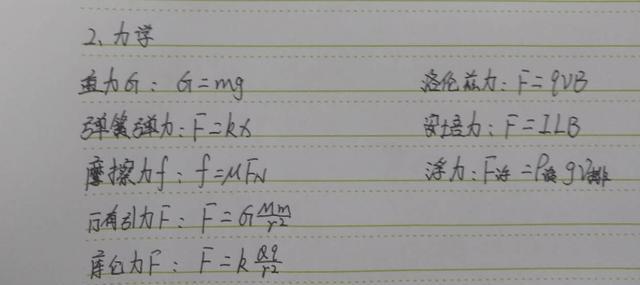 2、力学
重力G：G=mg
洛伦兹力：F=qVB
弹簧弹力：F=kx
安培力：F=ILB
摩擦力f：f=μFN
浮力：F浮=ρ液gV排
万有引力F：F=G Mm/r²
库仑力F：F=k Qq/r²